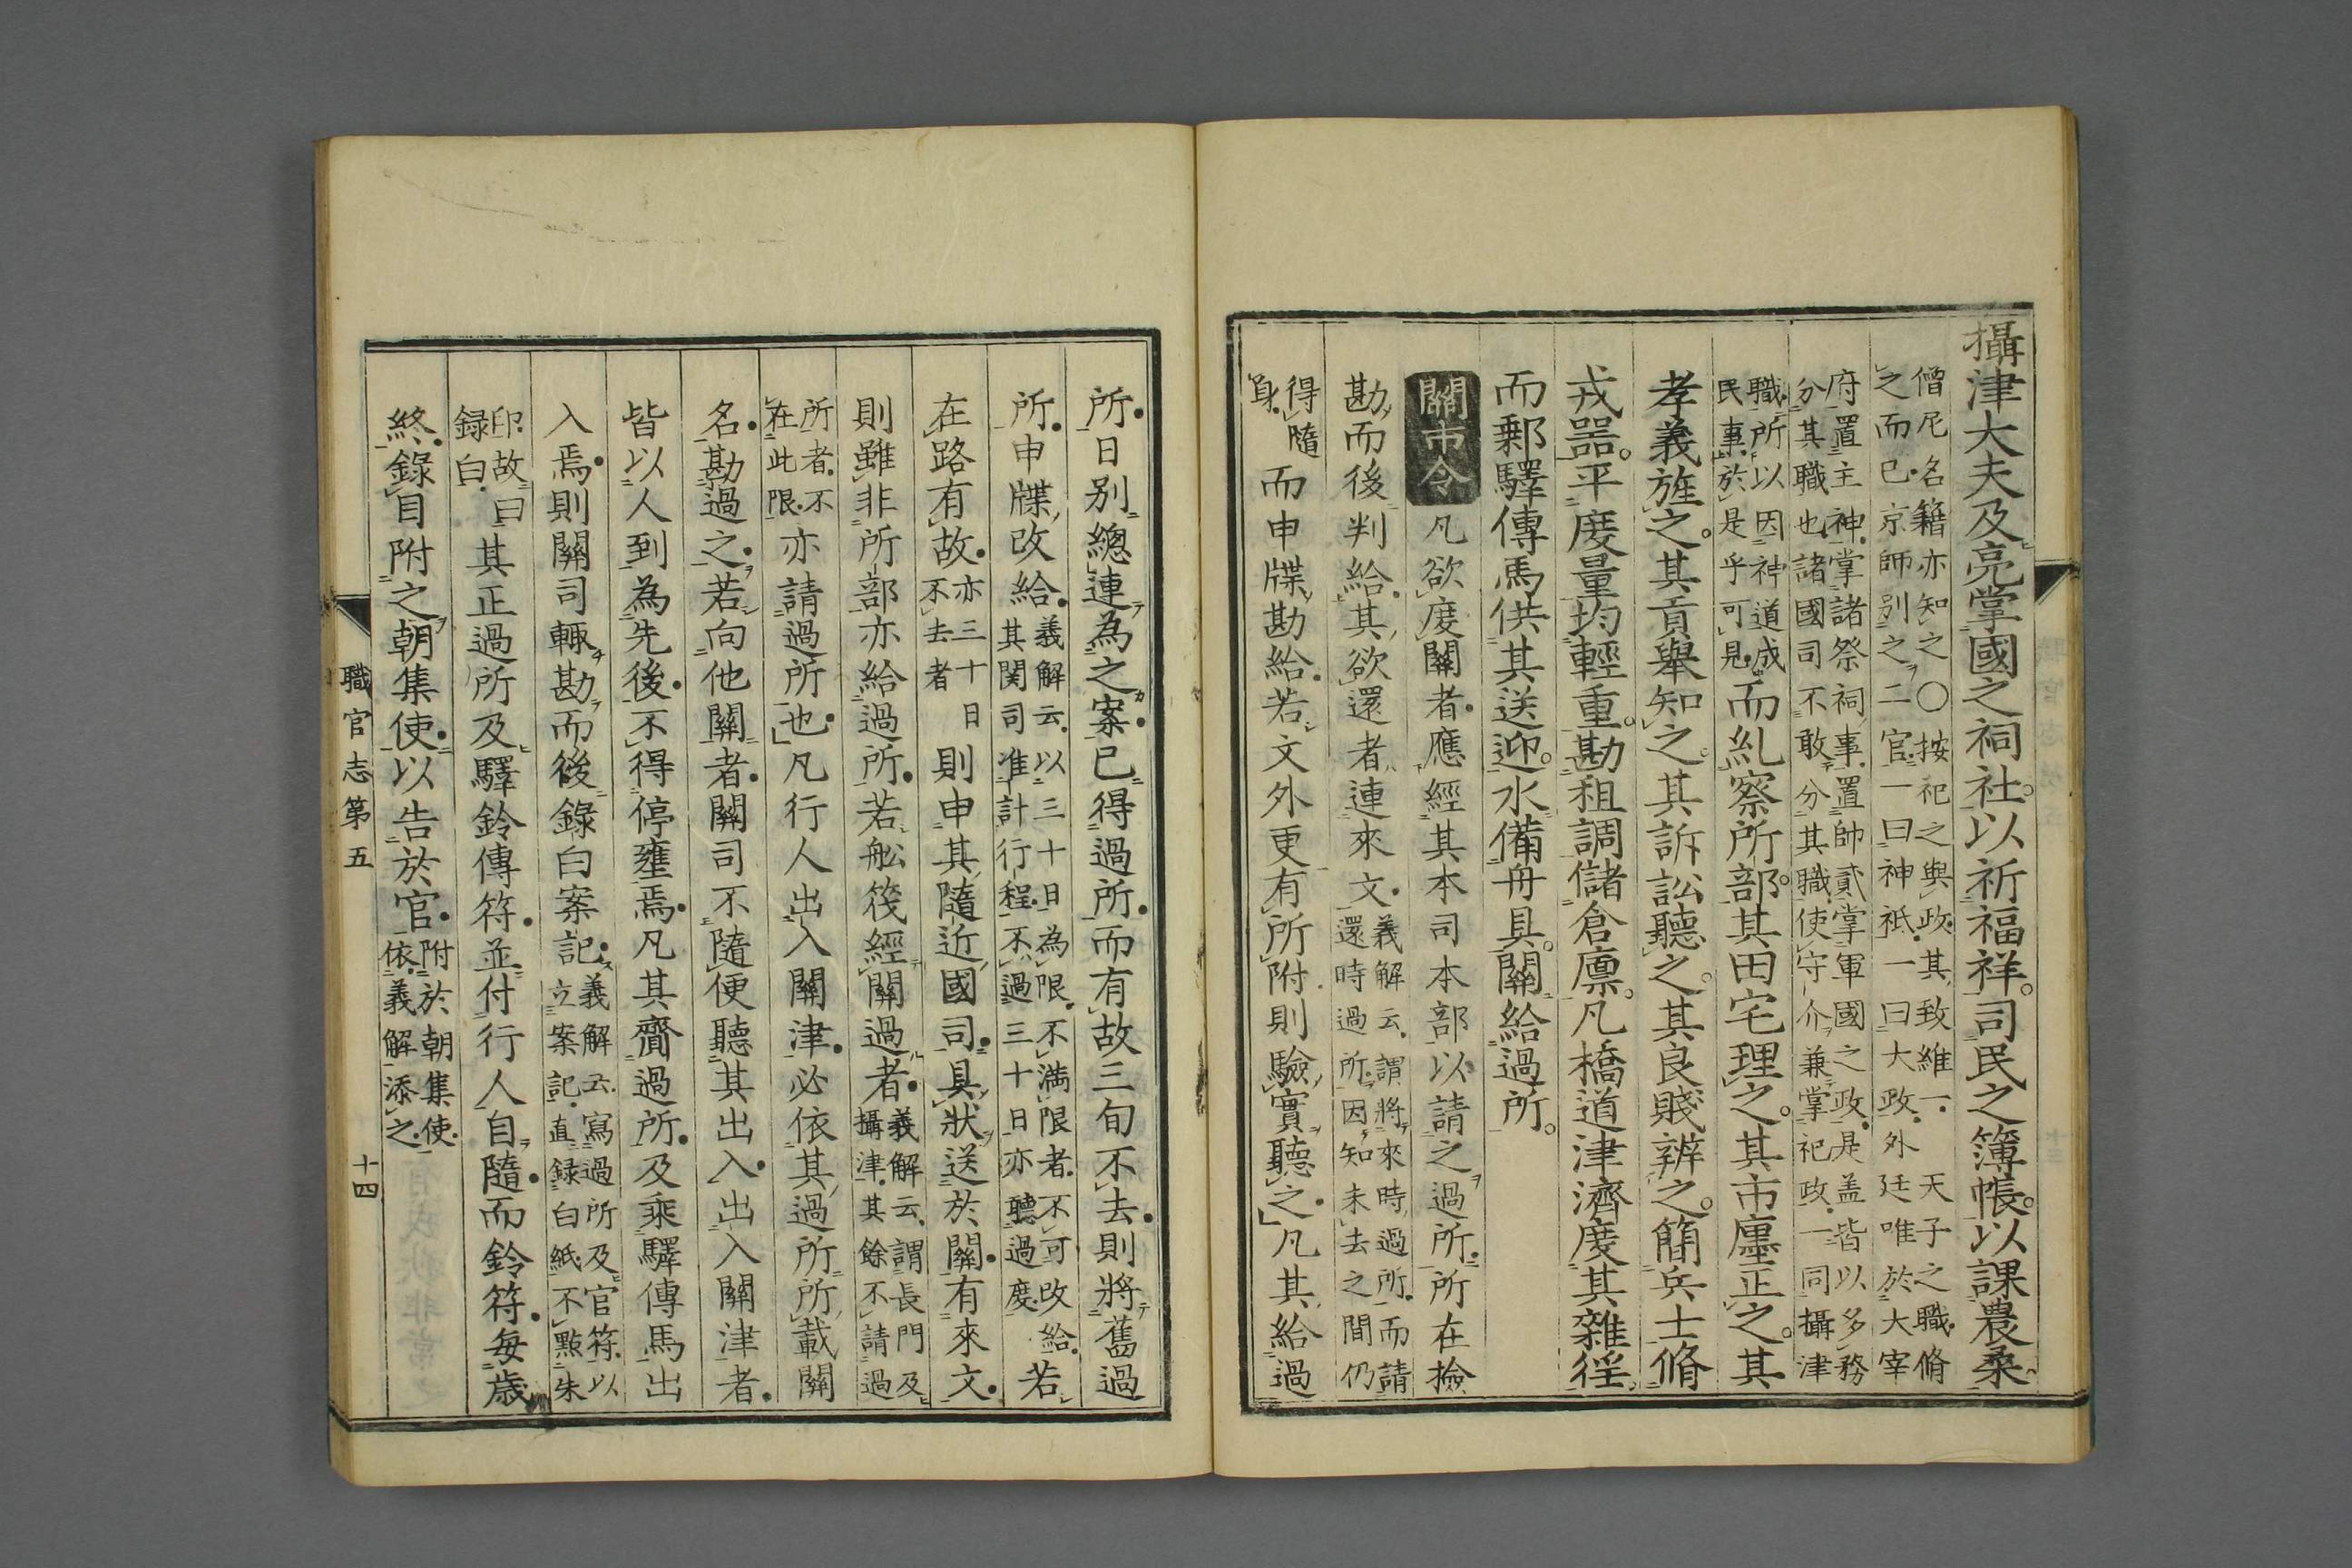 攝津大夫及亮掌國之祠社。以祈福祥。司民之簿帳。以課農桑。
僧尼名籍亦知之〇按祀之與政其致維一天子之職脩
之而已京師別之二官一曰神祇一曰大政外廷唯於大宰
府置主神掌諸祭祠事置帥貳掌軍國之政是盖皆以多務
分其職也諸國司不敢分其職使守介兼掌祀政一同攝津
職所以因神道成
民事於是乎可見
而糺察所部。其田宅理之。其市廛正之。其
孝義旌之。其貢舉知之。其訴訟聽之。其良賤辨之。簡兵士脩
戎器。平度量均輕重。勘租調儲倉廩。凡橋道津濟度其雜徭。
而郵驛傳馬供其送迎。水備舟具。關給過所。
關市令凡欲度關者應經其本司本部以請之過所所在撿
勘而後判給其欲還者連來文
義解云謂將來時過所而請
還時過所因知未去之間仍
得隨
身
而申牒勘給若文外更有所附則驗實聽之凡其給過
所日別總連為之案已得過所而有故三旬不去則將舊過
所申牒改給
義解云以三十日為限不滿限者不可改給
其関司准計行程不過三十日亦聽過度
若
在路有故
亦三十日
不去者
則申其隨近國司具狀送於關有來文
則雖非所部亦給過所若舩筏經關過者
義解云謂長門及
攝津其餘不請過
所者不
在此限
亦請過所也凡行人出入關津必依其過所所載關
名勘過之若向他關者關司不隨便聽其出入出入關津者
皆以人到為先後不得停壅焉凡其齎過所及乘驛傳馬出
入焉則關司輙勘而後錄白案記
義解云寫過所及官符以
立案記直録白紙不點朱
印故曰
録白
其正過所及驛鈴傳符並付行人自隨而鈴符每歲
終錄目附之朝集使以告於官
附於朝集使
依義解添之
職官志第五
十四